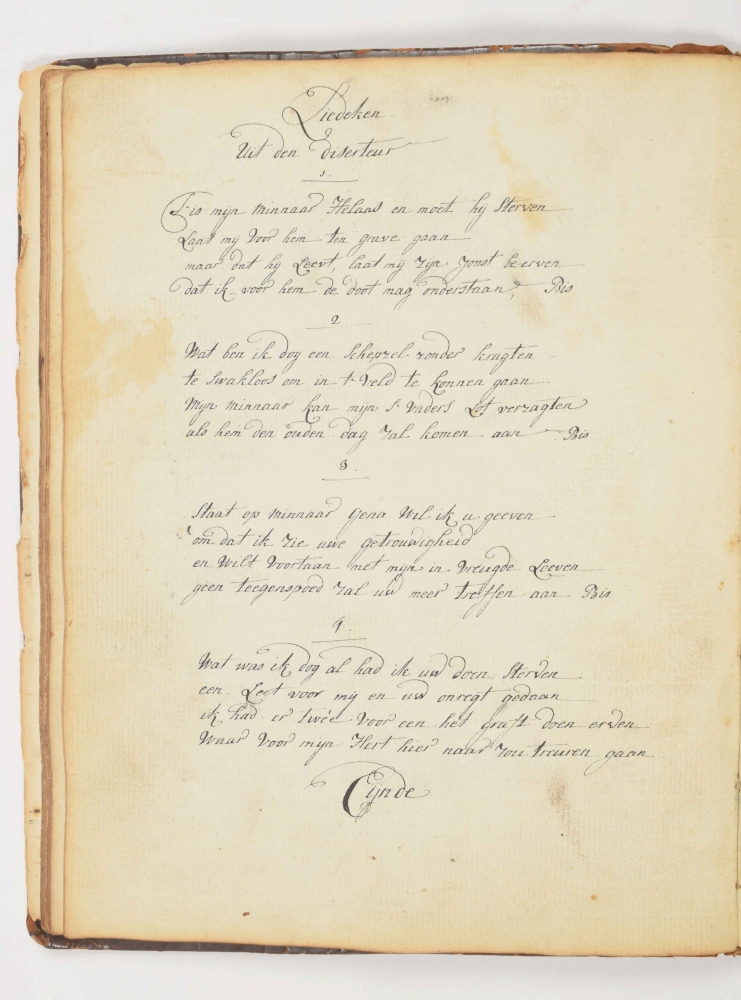 Liedeken
Uit den diserteur
1.
T'is mijn minnaar Helaas en moet hij Sterven
Laat mij voor hem ten grave gaan
maar dat hij Leevt, laat mij zijn Jonst be erven
dat ik voor hem de doot mag onderstaan, Bis
2.
Wat ben ik dog een schepzel zonder kragten
te swakloos om in t' veld te konnen gaan
Mijn minnaar kan mijn s' vaders Lot verzagten
als hem den ouden dag zal komen aan Bis
3.
Staat op minnaar gena Wil ik u geeven
om dat ik zie uwe getrouwigheid
en Wilt voortaan met mijn in vreugde Leeven
geen teegenspoed zal uw meer treffen aan Bis
4.
Wat was ik dog al had ik uw doen Sterven
een Leet voor mij en uw onregt gedaan
ik had er twée voor een het graft doen erven
Waar voor mijn Hert hier naar zou treuren gaan
Eijnde